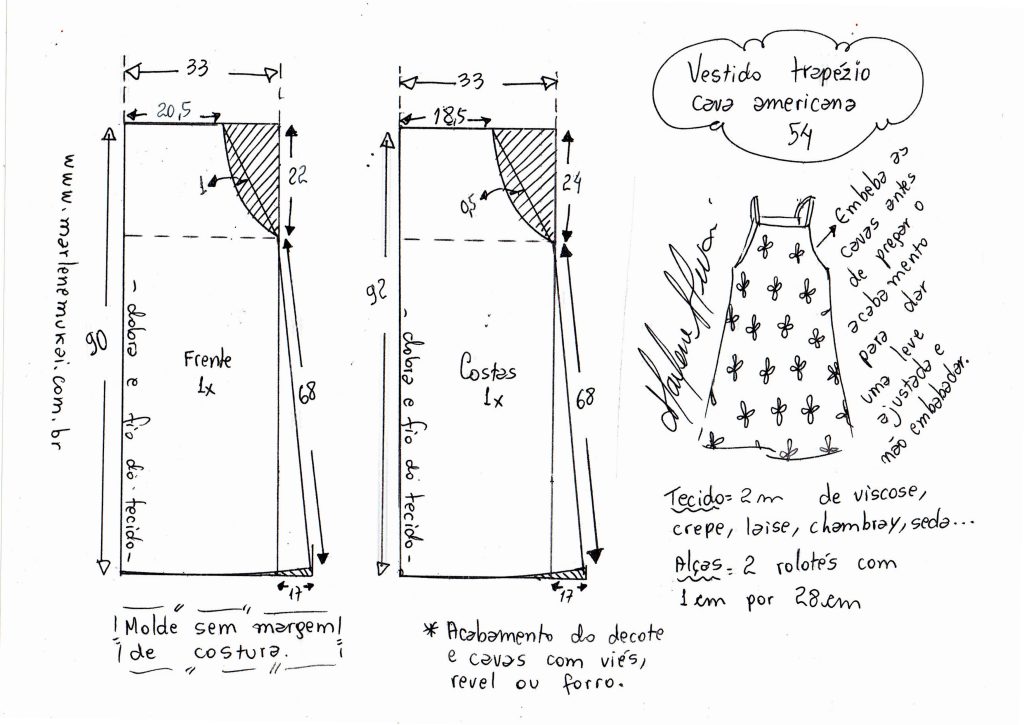 Vestido trapézio
cava americana
54
33
20,5
1
22
90
- dobra e fio do tecido -
Frente
1x
68
17
33
18,5
0,5
24
92
- dobra e fio do tecido -
Costas
1x
68
17
www.marlenemukai.com.br
Marlene Mukai
Embeba as
cavas antes
de pregar o
acabamento
para dar
uma leve
ajustada e
não embabadar.
Tecido = 2 m de viscose,
crepe, laise, chambray, seda...
Alças = 2 rolotés com
1 cm por 28 cm
Molde sem margem
de costura.
* Acabamento do decote
e cavas com viés,
revel ou forro.